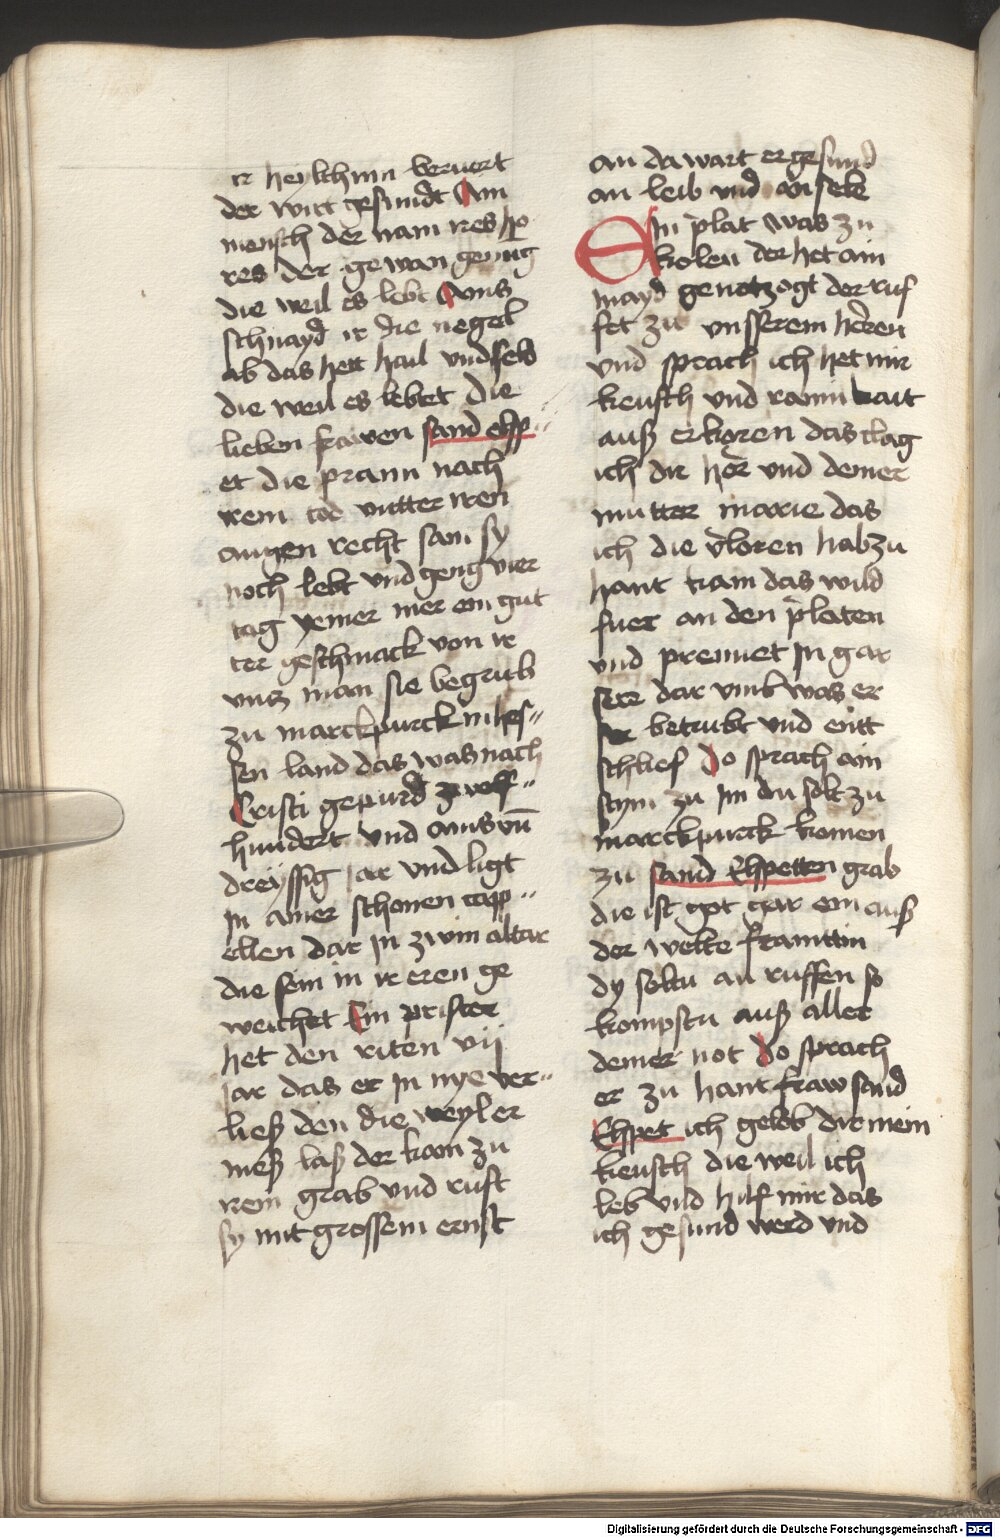 ir heylthum beruert
der wirt gesundt Ain
mensch der nam ires ho
res der gewan genug
die weil es lebt Ains
schnayd ir die negel
ab das hett hail und seld
die weil es lebet die
lieben frawen sand elsp
et die prann nach
irem tod untter iren
augen recht sam sy
noch lebt und geng vier
tag ymer mer ein gut
ter geschmack von ir
untz man sie begrub
zu marckpurck in hes
sen land das was nach
Cristi gepurd zwelf
hundert und ains un̄
dreyssig jar und ligt
in ainer schonen capp
ellen dar in zwin altar
die sein in ir eren ge
weichet Ein prister
het den riten vij
jar das er in nye ver
lies den die weyl er
mess lass der kam zu
irem grab und ruft
sy mit grossem ernst
an da wart er gesund
an leib und an sele
Ein plat was zu
kolen der het ain
mayd genotzogt der ruf
fet zu unsserem heren
und sprach ich het mir
keusch und rainikait
auss erkoren das clag
ich dir her und deiner
mutter marie das
ich die vloren hab zu
hant kam das wild
fuer an den platen
und prennet in gar
seer dar umb was er
ser betrubt und entt
schlief Do sprach ain
stym zu im du solt zu
marckpurck komen
zu sand Elspetten grab
die ist got gar ein auss
der welte frawin
dy soltu an ruffen so
kompstu auss aller
deiner not Do sprach
er zu hant fraw sand
Elspet ich gelob dir mein
keusch die weil ich
leb und hilf mir das
ich gesund werd und
Digitalisierung gefördert durch die Deutsche Forschungsgemeinschaft - DFG